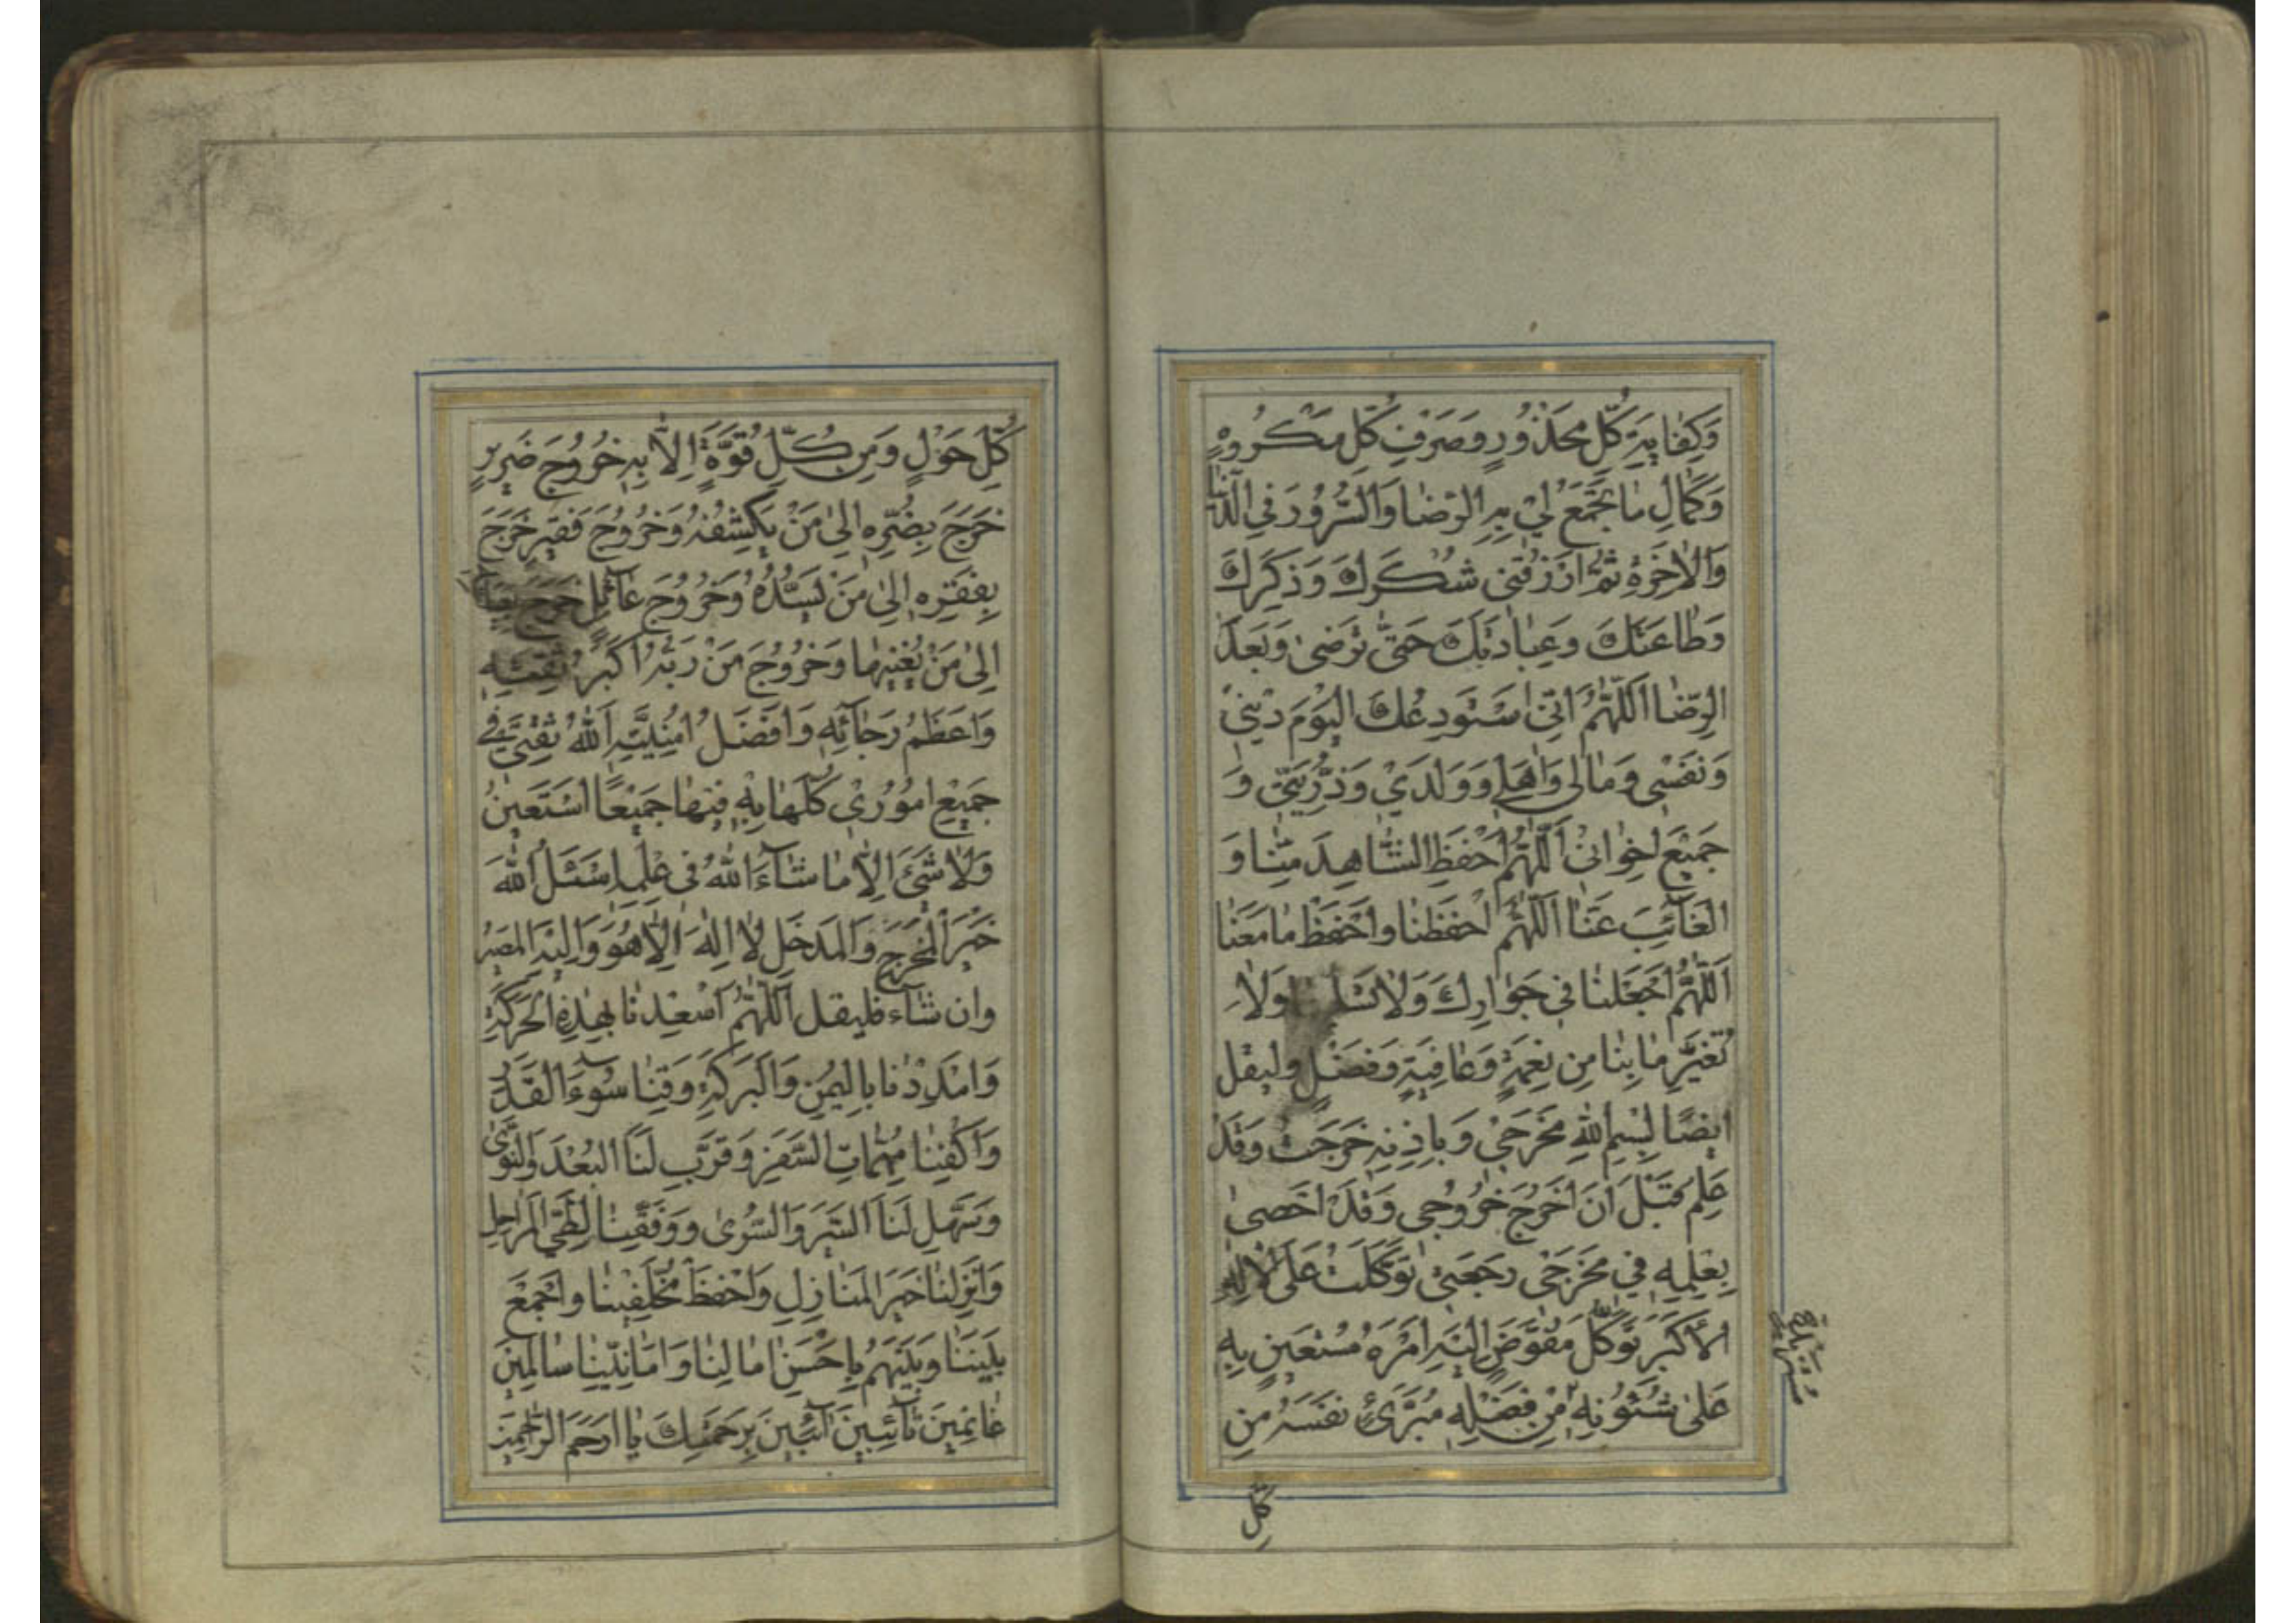 وَكِفٰايَةِ كُلِّ مَحْذُورٍ وَصَرْفِ كُلِّ مَكْرُوهٍ
وَكَمٰالِ مٰا يَجْمَعُ لِيْ بِهِ الرِّضٰا وَالسُّرُورَ فِي الدُّنْيٰا
وَالْاٰخِرَةِ ثُمَّ ارْزُقْنِي شُكْرَكَ وَذِكْرَكَ
وَطٰاعَتَكَ وَعِبٰادَتَكَ حَتّٰى تَرْضٰى وَبَعْدَ
الرِّضٰا اَللّٰهُمَّ اِنِّي اَسْتَوْدِعُكَ الْيَوْمَ دِيْنِيْ
وَنَفْسِي وَمٰالِي وَاَهْلِي وَوَلَدِيْ وَذُرِّيَّتِي وَ
جَمِيْعَ اِخْوٰانِيْ اَللّٰهُمَّ احْفَظِ الشّٰاهِدَ مِنّٰا وَ
الْغٰآئِبَ عَنّٰا اَللّٰهُمَّ احْفَظْنٰا وَاحْفَظْ مٰا مَعَنٰا
اَللّٰهُمَّ اجْعَلْنٰا فِي جَوٰارِكَ وَلاٰ وَلاٰ
تُغَيِّرْ مٰا بِنٰا مِنْ نِعْمَةٍ وَعٰافِيَةٍ وَفَضْلٍ وليقل
ايضًا بِسْمِ اللّٰهِ مَخْرَجِيْ وَبِاِذْنِهِ خَرَجْتُ وَقَدْ
عَلِمَ قَبْلَ اَنْ اَخْرُجَ خُرُوْجِي وَقَدْ اَحْصٰى
بِعِلْمِهِ فِي مَخْرَجِي رَجْعَتِيْ تَوَكَّلْتُ عَلَى الْاِلٰهِ
الْاَكْبَرِ تَوَكُّلَ مُفَوِّضٍ اِلَيْهِ اَمْرَهُ مُسْتَعِيْنٍ بِهِ
عَلٰى شُئُوْنِهِ مِنْ فَضْلِهِ مُبْرِئٍ نَفْسَهُ مِنْ
كُلِّ
كُلِّ حَوْلٍ وَمِنْ كُلِّ قُوَّةٍ اِلاّٰ بِهِ خُرُوْجَ ضَرِيْرٍ
خَرَجَ بِضُرِّهِ اِلٰى مَنْ يَكْشِفُهُ وَخُرُوْجَ فَقِيْرٍ خَرَجَ
بِفَقْرِهِ اِلٰى مَنْ يَسُدُّهُ وَخُرُوْجَ عٰآئِلٍ خَرَجَ
اِلٰى مَنْ يُغْنِيْهٰا وَخُرُوْجَ مَنْ رَبُّهُ اَكْبَرُ ثِقَتِهِ
وَاَعْظَمُ رَجٰائِهِ وَاَفْضَلُ اُمْنِيَّتِهِ اَللّٰهُ ثِقَتِيْ فِي
جَمِيْعِ اُمُوْرِيْ كُلِّهٰا بِهِ فِيْهٰا جَمِيْعًا اَسْتَعِيْنُ
وَلاٰ شَيْءَ اِلاّٰ مٰا شٰآءَ اللّٰهُ فِي عِلْمِهِ اَسْئَلُ اللّٰهَ
خَيْرَ الْمَخْرَجِ وَالْمَدْخَلِ لاٰ اِلٰهَ اِلاّٰ هُوَ وَاِلَيْهِ الْمَصِيْرُ
وان شآء فليقل اَللّٰهُمَّ اَسْعِدْنٰا بِهٰذِهِ الْحَرَكَةِ
وَامْدِدْنٰا بِالْيُمْنِ وَالْبَرَكَةِ وَقِنٰا سُوْءَ الْقَدَرِ
وَاكْفِنٰا مُهِمّٰاتِ السَّفَرِ وَقَرِّبْ لَنَا الْبُعْدَ وَالنَّوٰى
وَسَهِّلْ لَنَا السَّيْرَ وَالسُّرٰى وَوَفِّقْنٰا لِطَيِّ الْمَرٰاحِلِ
وَاَنْزِلْنٰا خَيْرَ الْمَنٰازِلِ وَاحْفَظْ مُخَلَّفِيْنٰا وَاجْمَعْ
بَيْنَنٰا وَبَيْنَهُمْ بِاَحْسَنِ اٰمٰالِنٰا وَاَمٰانِيِّنٰا سٰالِمِيْنَ
غٰانِمِيْنَ تٰآئِبِيْنَ اٰئِبِيْنَ بِرَحْمَتِكَ يٰا اَرْحَمَ الرّٰاحِمِيْنَ